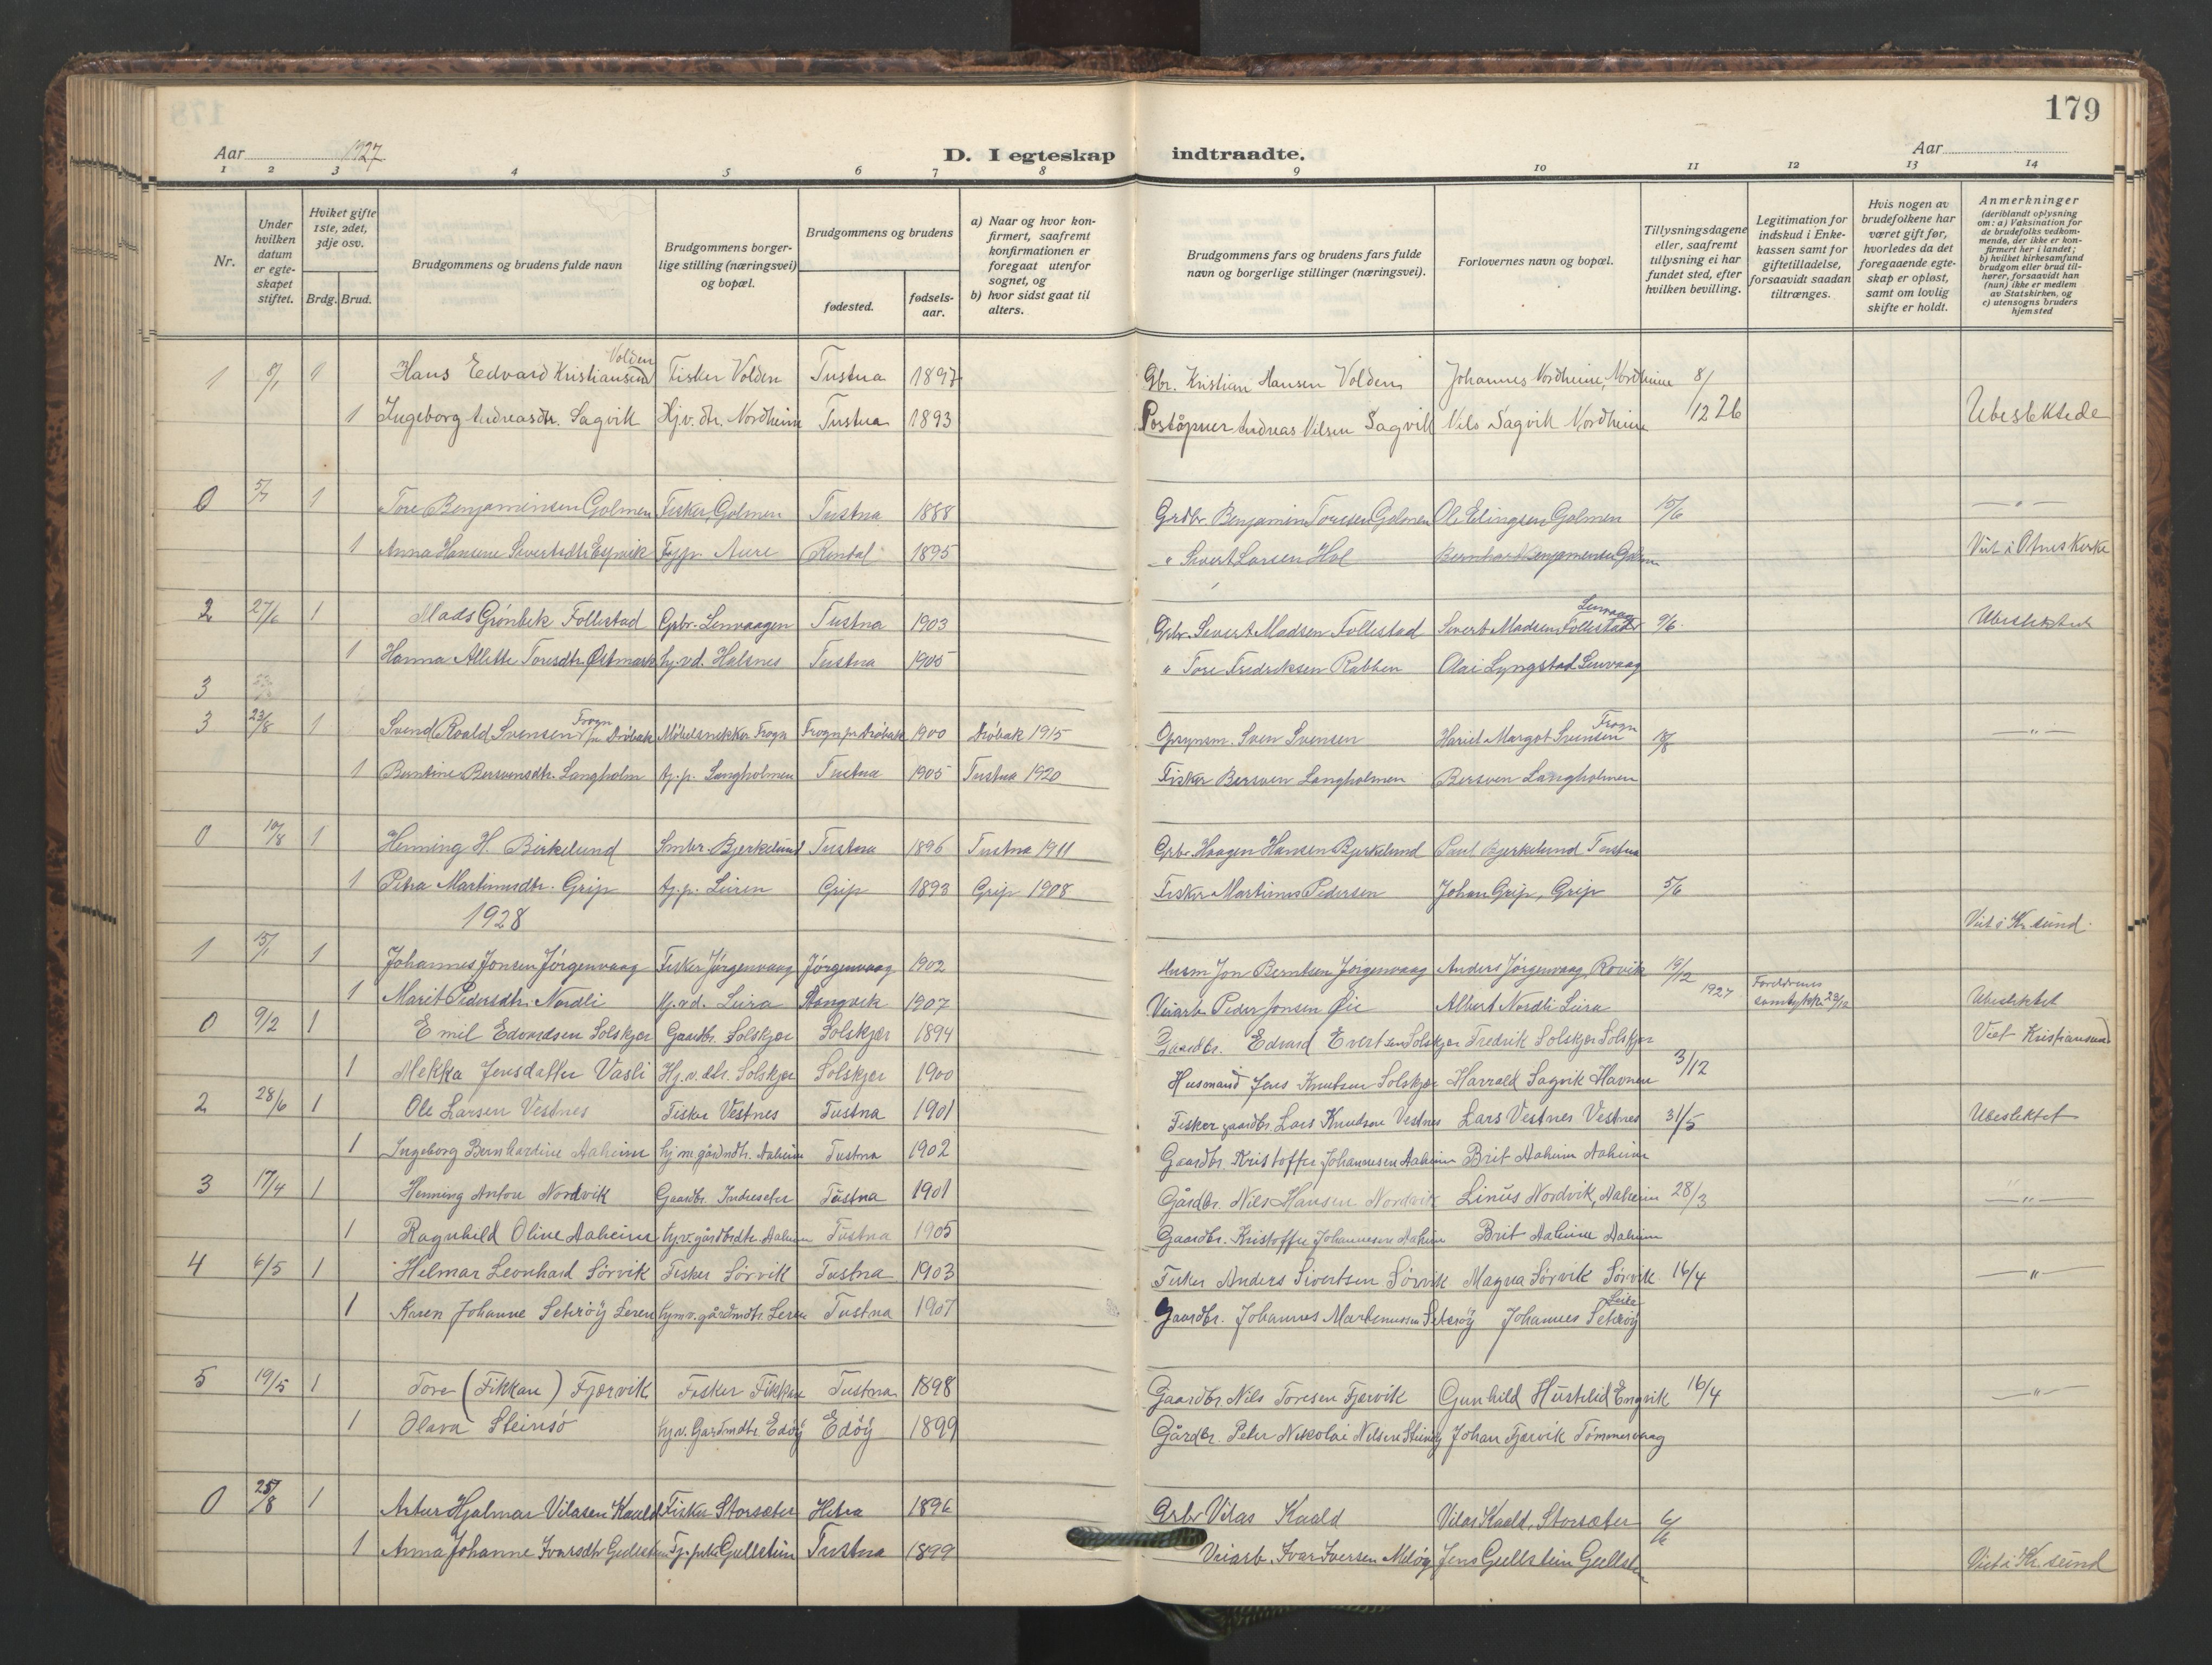 179
Aar 1927
D. I egteskap indtraadte.
Aar
1 2 3 4 5 6 7 8 9 10 11 12 13 14
Nr.
Under hvilken datum er egteskapet stiftet.
Hviket gifte 1ste, 2det, 3dje osv.
Brdg. Brud.
Brudgommens og brudens fulde navn
Brudgommens borgerlige stilling (næringsvei) og bopæl.
Brudgommens og brudens
fødested.
fødselsaar.
a) Naar og hvor konfirmert, saafremt konfirmationen er foregaat utenfor sognet, og
b) hvor sidst gaat til alters.
Brudgommens fars og brudens fars fulde navn og borgerlige stillinger (næringsvei).
Forlovernes navn og bopæl.
Tillysningsdagene eller, saafremt tillysning ei har fundet sted, efter hvilken bevilling.
Legitimation for indskud i Enkekassen samt for giftetilladelse, forsaavidt saadan tiltrænges.
Hvis nogen av brudefolkene har været gift før, hvorledes da det foregaaende egteskap er opløst, samt om lovlig skifte er holdt.
Anmerkninger
(deriblandt oplysning om: a) Vaksination for de brudefolks vedkommende, der ikke er konfirmert her i landet; b) hvilket kirkesamfund brudgom eller brud tilhører, forsaavidt han (hun) ikke er medlem av Statskirken, og c) utensogns bruders hjemsted
1 8/1 1 Hans Edvard Kristiansen Volden Fisker Volden Tustna 1897 Gbr. Kristian Hansen Volden Johannes Nordheim, Nordheim 8/12 26
1 Ingeborg Andreasdtr. Sagvik Hj.v. dtr. Nordheim Tustna 1893 Poståpner Andreas Nilsen Sagvik Nils Sagvik Nordheim Ubeslektede
0 5/7 1 Tore Benjaminsen Golmen Fisker, Golmen Tustna 1888 Grdbr Benjamin Toresen Golmen Ole Elingsen Golmen 15/6 — " —
1 Anna Hansene Sivertsdtr Espvik Aure Rendal 1895 " Sivert Larsen Hol Bernhard Benjaminsen Golmen Viet i Otnes Kirke
2 27/6 1 Mads Grönbek Follestad Gbr. Lenvaagen Tustna 1903 Gbr. Sivert Madsen Follestad Sivert Madsen Follestad Lenvaag 9/6. Ubeslektet
1 Hanna Allette Toresdtr. Østmark hj.v.d. Halsnes Tustna 1905 " Tore Fredriksen Rabben Olai Lyngstad Lenvaag
3
3 23/8 1 Svend Roald Svensen Frogn pr Drøbak Møbelsnekker Frogn Frogn pr Drøbak 1900 Drøbak 1915 Opsynsm. Sven Svensen Hariet Margot Svensen Frogn — " —
1 Berntine Bersvensdtr. Langholm tj.p. Langholmen Tustna 1905 Tustna 1920 Fisker Bersven Langholmen Bersven Langholmen
0 10/8 1 Henning H. Birkelund Smbr. Bjerkelund Tustna 1896 Tustna 1911 Gbr. Haagen Hansen Bjerkelund Paul Bjerkelund Tustna
1 Petra Martinusdtr. Grip tj.p. Leiren Grip 1893 Grip 1908 Fisker Martinus Pedersen Johan Grip, Grip 5/6
1928
Viet i Kr.sund.
1 15/1 1 Johannes Jonsen Jörgenvaag Fisker Jörgenvaag Jörgenvaag 1902 Husm Jon Berntsen Jörgenvaag Anders Jörgenvaag, Rovik 19/12 1927
1 Marit Pedersdtr. Nordli hj.v.d. Leira Stangvik 1907 Veiarb Peder Jonsen Øie Albert Nordli Leira Foreldrenes samtykke 23/12 Ubeslektet
0 9/2 1 Emil Edvardsen Solskjer Gaardbr. Solskjer Solskjær 1894 Gaardbr. Edvard Evertsen Solskjer Fredrik Solskjer Solskjer Viet Kristiansund
1 Mekka Jensdatter Vasli Hj.v. dtr. Solskjer Solskjer 1900 Husmand Jens Knutsen Solskjer Harrald Sagvik Havnen 3/12
2 28/6 1 Ole Larsen Vestnes Fisker Vestnes Tustna 1901 Fisker gaardbr. Lars Knudsen Vestnes Lars Vestnes Vestnes 31/5 Ubeslektet
1 Ingeborg Bernhardine Aaheim hj m. gårdmdtr. Aaheim Tustna 1902 Gaardbr. Kristoffer Johannesen Aaheim Brit Aaheim Aaheim
3 17/4 1 Henning Anton Nordvik Gaardbr. Indreseter Tustna 1901 Gårdbr. Nils Hansen Nordvik Linus Nordvik, Aaheim 28/3 — " —
1 Ragnhild Oline Aaheim hj.v. gårdbrdtr. Aaheim Tustna 1905 Gaardbr. Kristoffer Johannesen Aaheim Brit Aaheim Aaheim
4 6/5 1 Helmar Leonhard Sörvik Fisker Sörvik Tustna 1903 Fisker Anders Sivertsen Sörvik Magna Sörvik Sörvik 16/4 — " —
1 Karen Johanne Seteröy Leren hjm v. gårdmdtr. Leren Tustna 1907 Gaardbr. Johannes Martinussen Seteröy Johannes Seteröy
5 19/5 1 Tore (Fikkan) Fjærvik Fisker Fikkan Tustna 1898 Gaardbr. Nils Toresen Fjærvik Gunhild Hustelid Engvik 16/4 — " —
1 Olava Steinsö hj.v. Gardmdtr. Edöy Edöy 1899 Gårdbr. Peter Nikolai Nilsen Johan Fjærvik Tömmervaag
0 25/8 1 Artur Hjalmar Vilasen Kaald Fisker Storsæter Hitra 1896 Arbr Vilas Kaald Vilas Kaald, Storsæter 6/6
1 Anna Johanne Ivarsdtr Gullstein Gullstein Tustna 1899 Veiarb. Ivar Iversen Melöy Jens Gullstein Gullstein Viet i Kr.sund